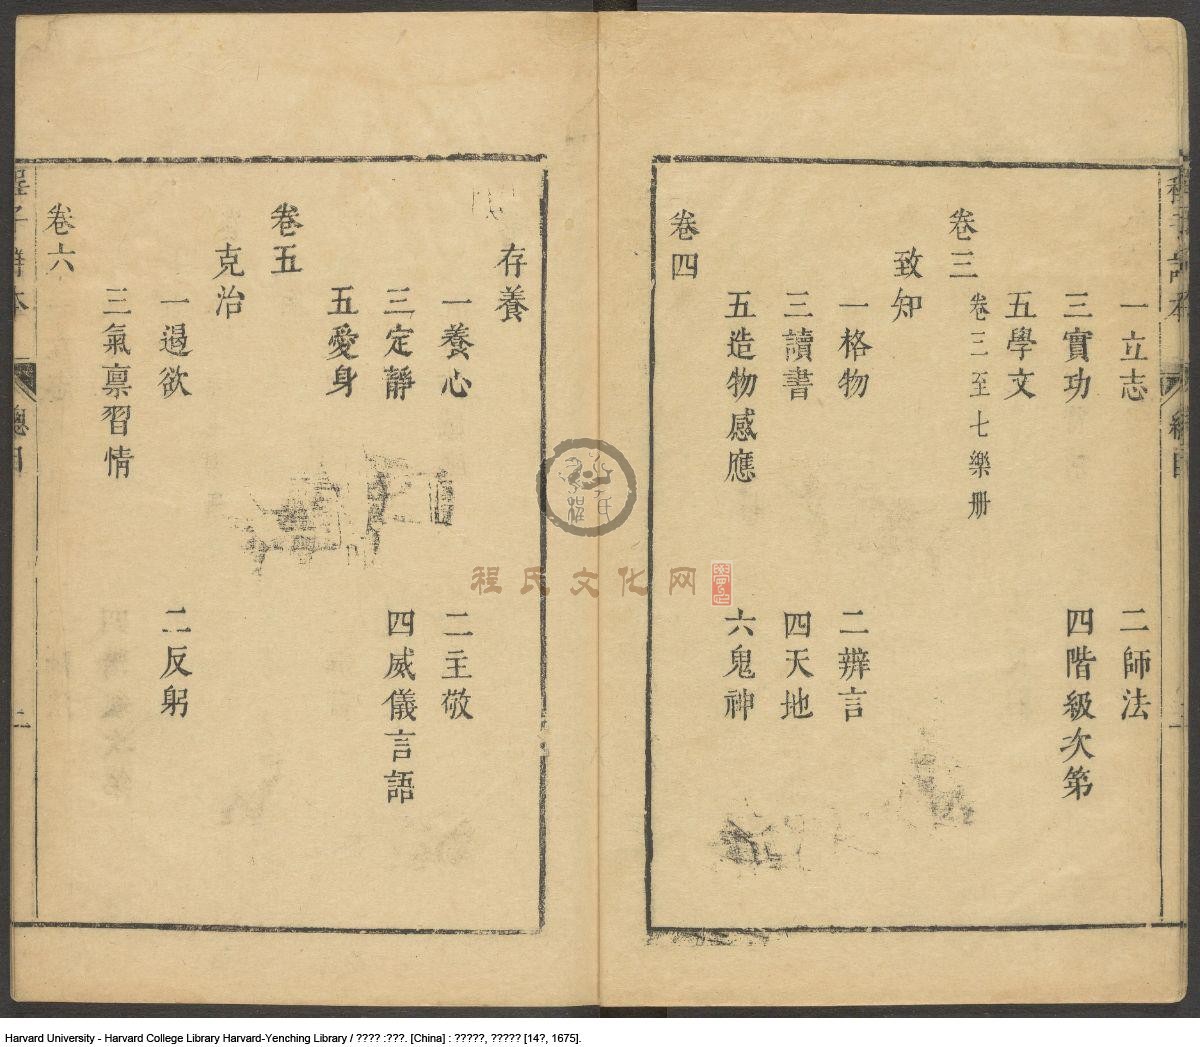 一立志 二師法
三實功 四階級次第
五學文
卷三 卷三至七樂册
致知
一格物 二辨言
三讀書 四天地
五造物感應 六鬼神
卷四
存養
一養心 二主敬
三定靜 四威儀言語
五愛身
卷五
克治
一遏欲 二反躬
三氣禀習情
卷六
總目 二
程氏文化网
Harvard University - Harvard College Library Harvard-Yenching Library / ???? :???. [China] : ?????, ????? [14?, 1675].